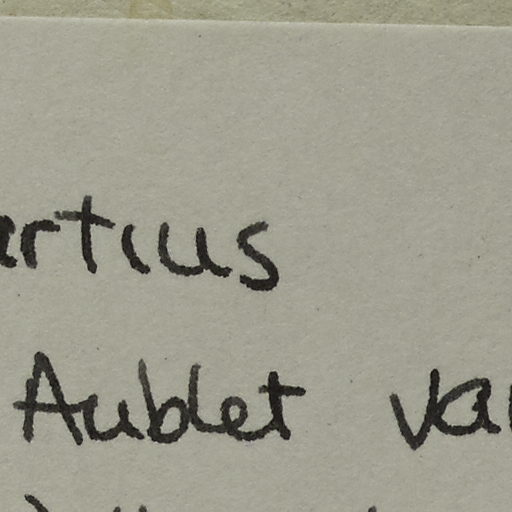 artius
Aublet va